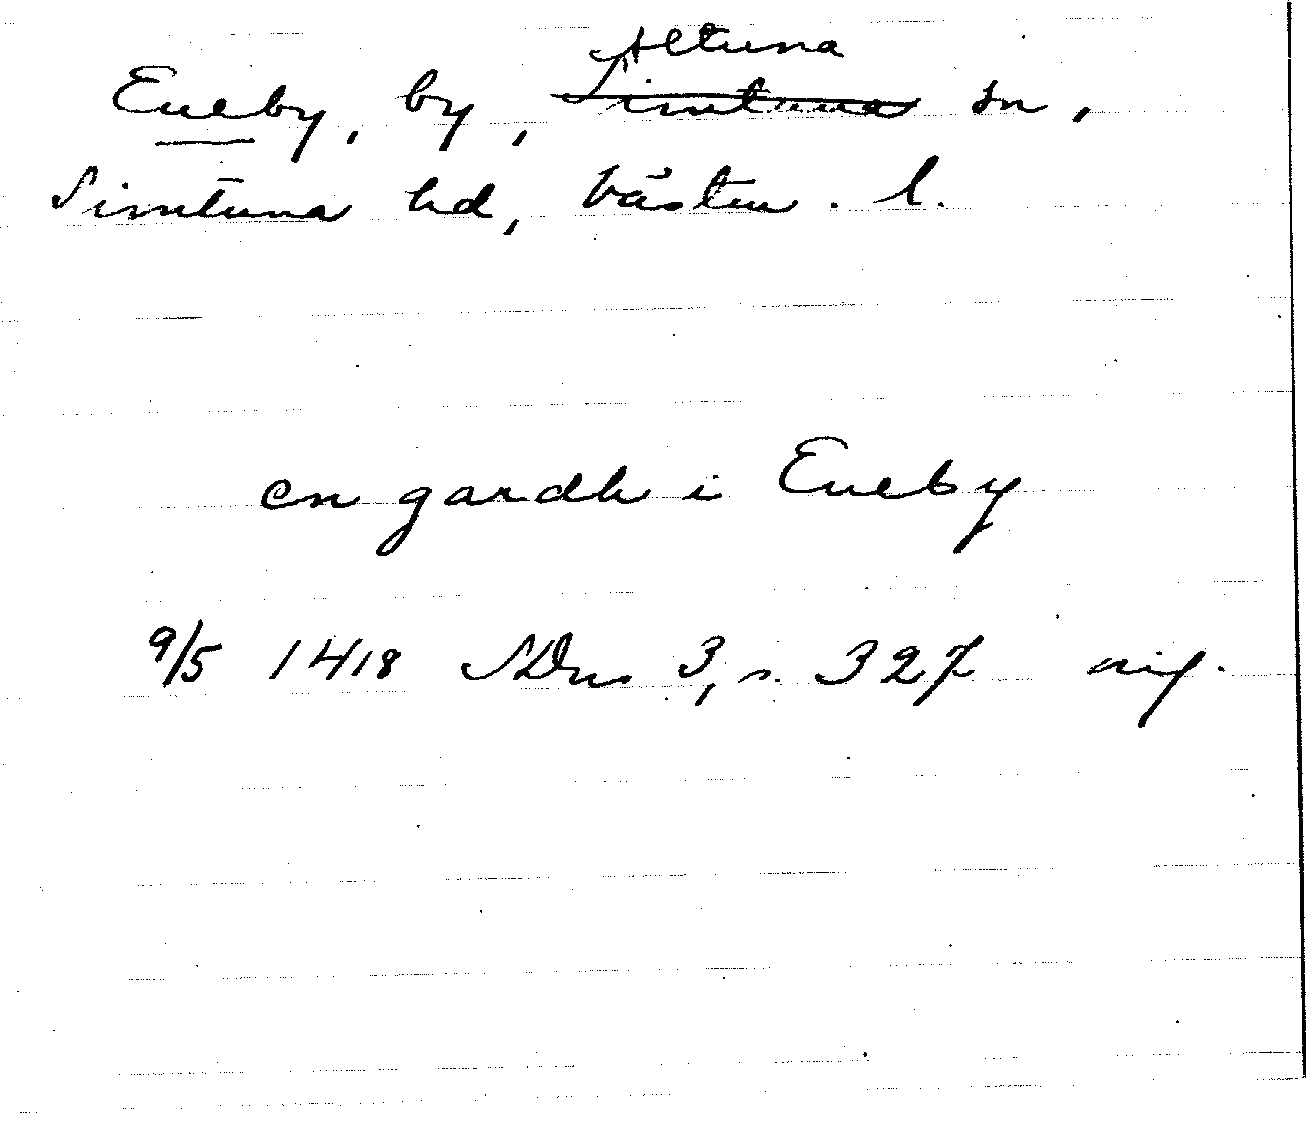 Altuna
Eneby, by, Simtuna sn,
Simtuna hd, Västm. l.
en gardh i Eneby
9/5 1418 SDns 3, s. 327 nif.